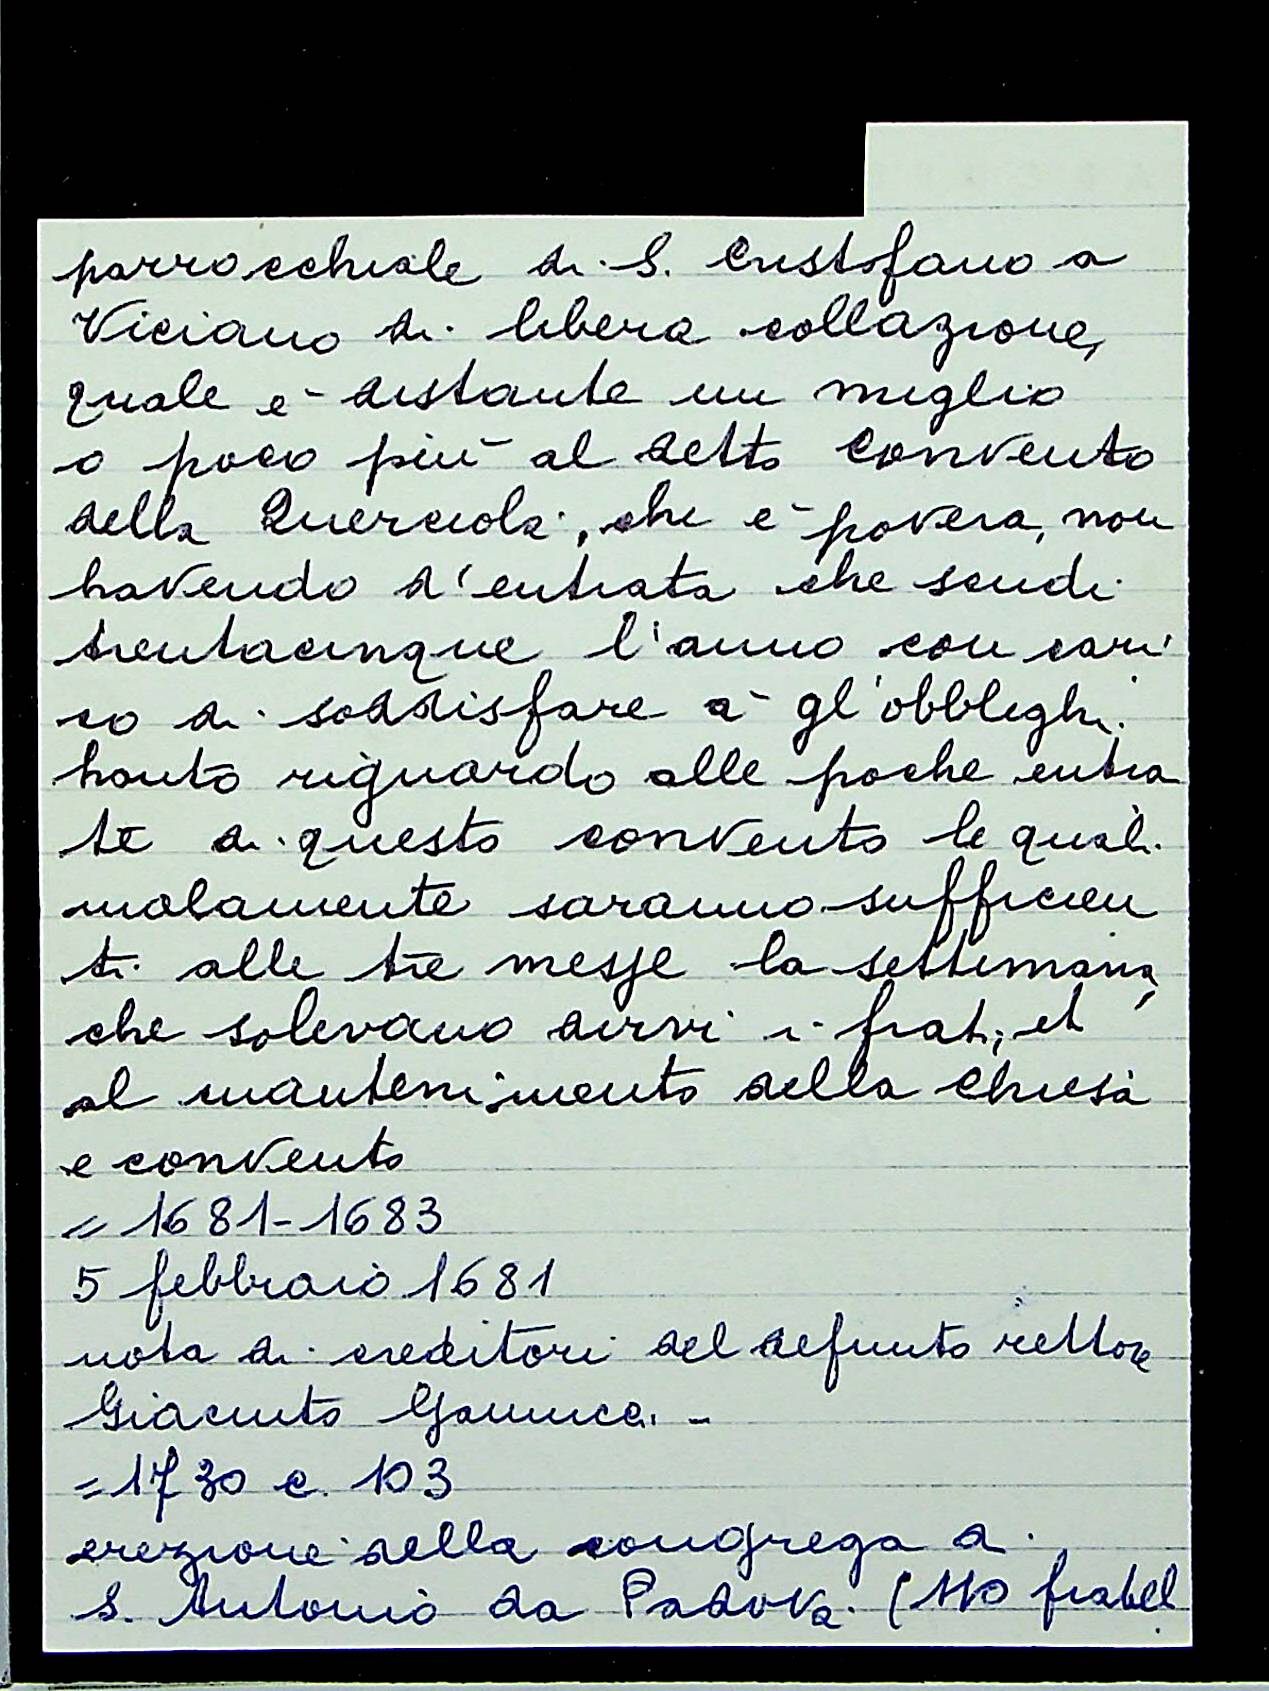 parrocchiale di S. Cristofano a
Viciano di libera collazione,
quale è distante un miglio
o poco più al detto convento
della Querciola, che è povera, non
havendo d'entrata che scudi
trentacinque l'anno con cari
co di soddisfare à gl'obblighi.
hauto riguardo alle poche entra
te di questo convento le quali
malamente saranno sufficien
ti alle tre messe la settimana,
che solevano dirvi i frati, et
al mantenimento della chiesa
e convento
= 1681-1683
5 febbraio 1681
nota di creditori del defunto rettore
Giacinto
=1730 c. 103
erezione della congrega di
S. Antonio da Padova. (110 fratel